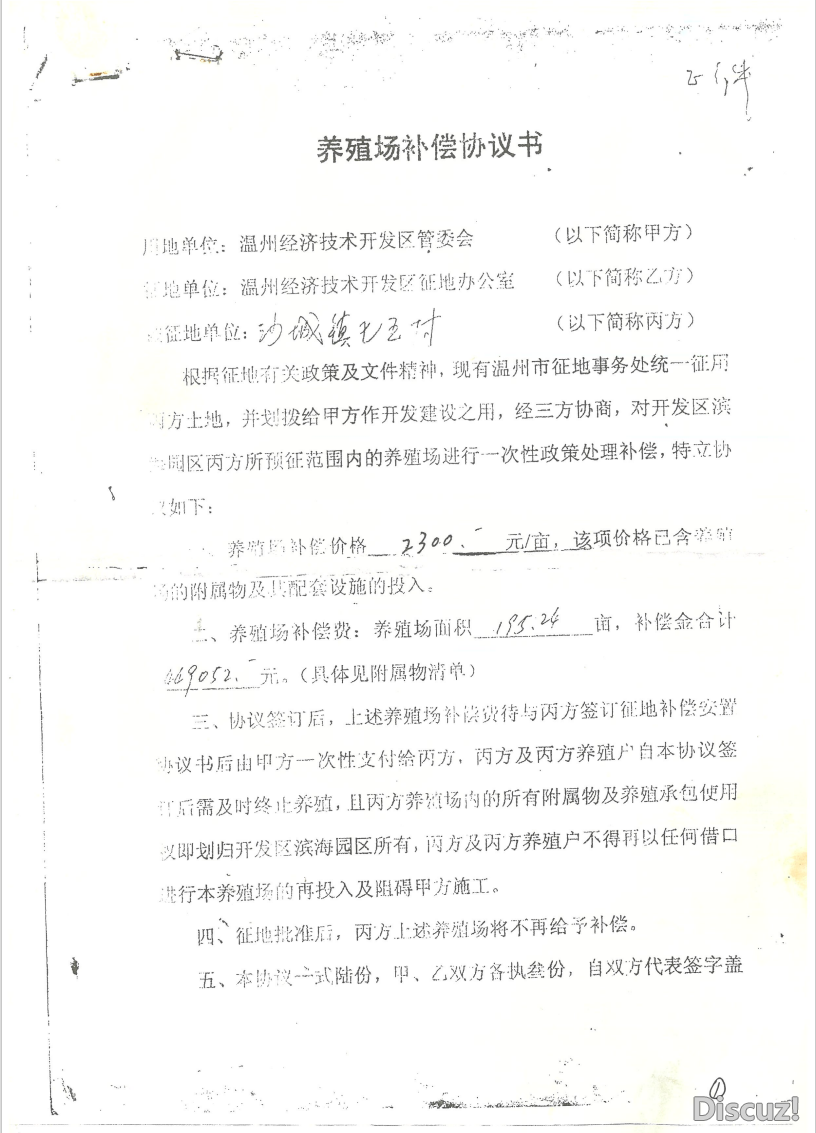 养殖场补偿协议书
用地单位：温州经济技术开发区管委会 （以下简称甲方）
征地单位：温州经济技术开发区征地办公室 （以下简称乙方）
被征地单位：沙城镇七五村 （以下简称丙方）
根据征地有关政策及文件精神，现有温州市征地事务处统一征用
丙方土地，并划拨给甲方作开发建设之用，经三方协商，对开发区滨
海园区丙方所预征范围内的养殖场进行一次性政策处理补偿，特立协
议如下：
一、养殖场补偿价格 2300.- 元/亩，该项价格已含养殖
场的附属物及其配套设施的投入。
二、养殖场补偿费：养殖场面积 195.24 亩，补偿金合计
449052.- 元。（具体见附属物清单）
三、协议签订后，上述养殖场补偿费待与丙方签订征地补偿安置
协议书后由甲方一次性支付给丙方，丙方及丙方养殖户自本协议签
订后需及时终止养殖，且丙方养殖场内的所有附属物及养殖承包使用
权即划归开发区滨海园区所有，丙方及丙方养殖户不得再以任何借口
进行本养殖场的再投入及阻碍甲方施工。
四、征地批准后，丙方上述养殖场将不再给予补偿。
五、本协议一式陆份，甲、乙双方各执叁份，自双方代表签字盖
①
Discuz!